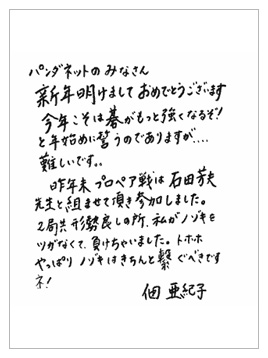 パンダネットのみなさん
新年明けましておめでとうございます
今年こそは碁がもっと強くなるぞ!
と年始めに誓うのでありますが....
難しいです。。
昨年末プロペア戦は石田芳夫
先生と組ませて頂き参加しました。
2局共形勢良しの所、私がノゾキを
ツガなくて、負けちゃいました。トホホ
やっぱりノゾキはきちんと繋ぐべきです
ネ!
佃 亜紀子